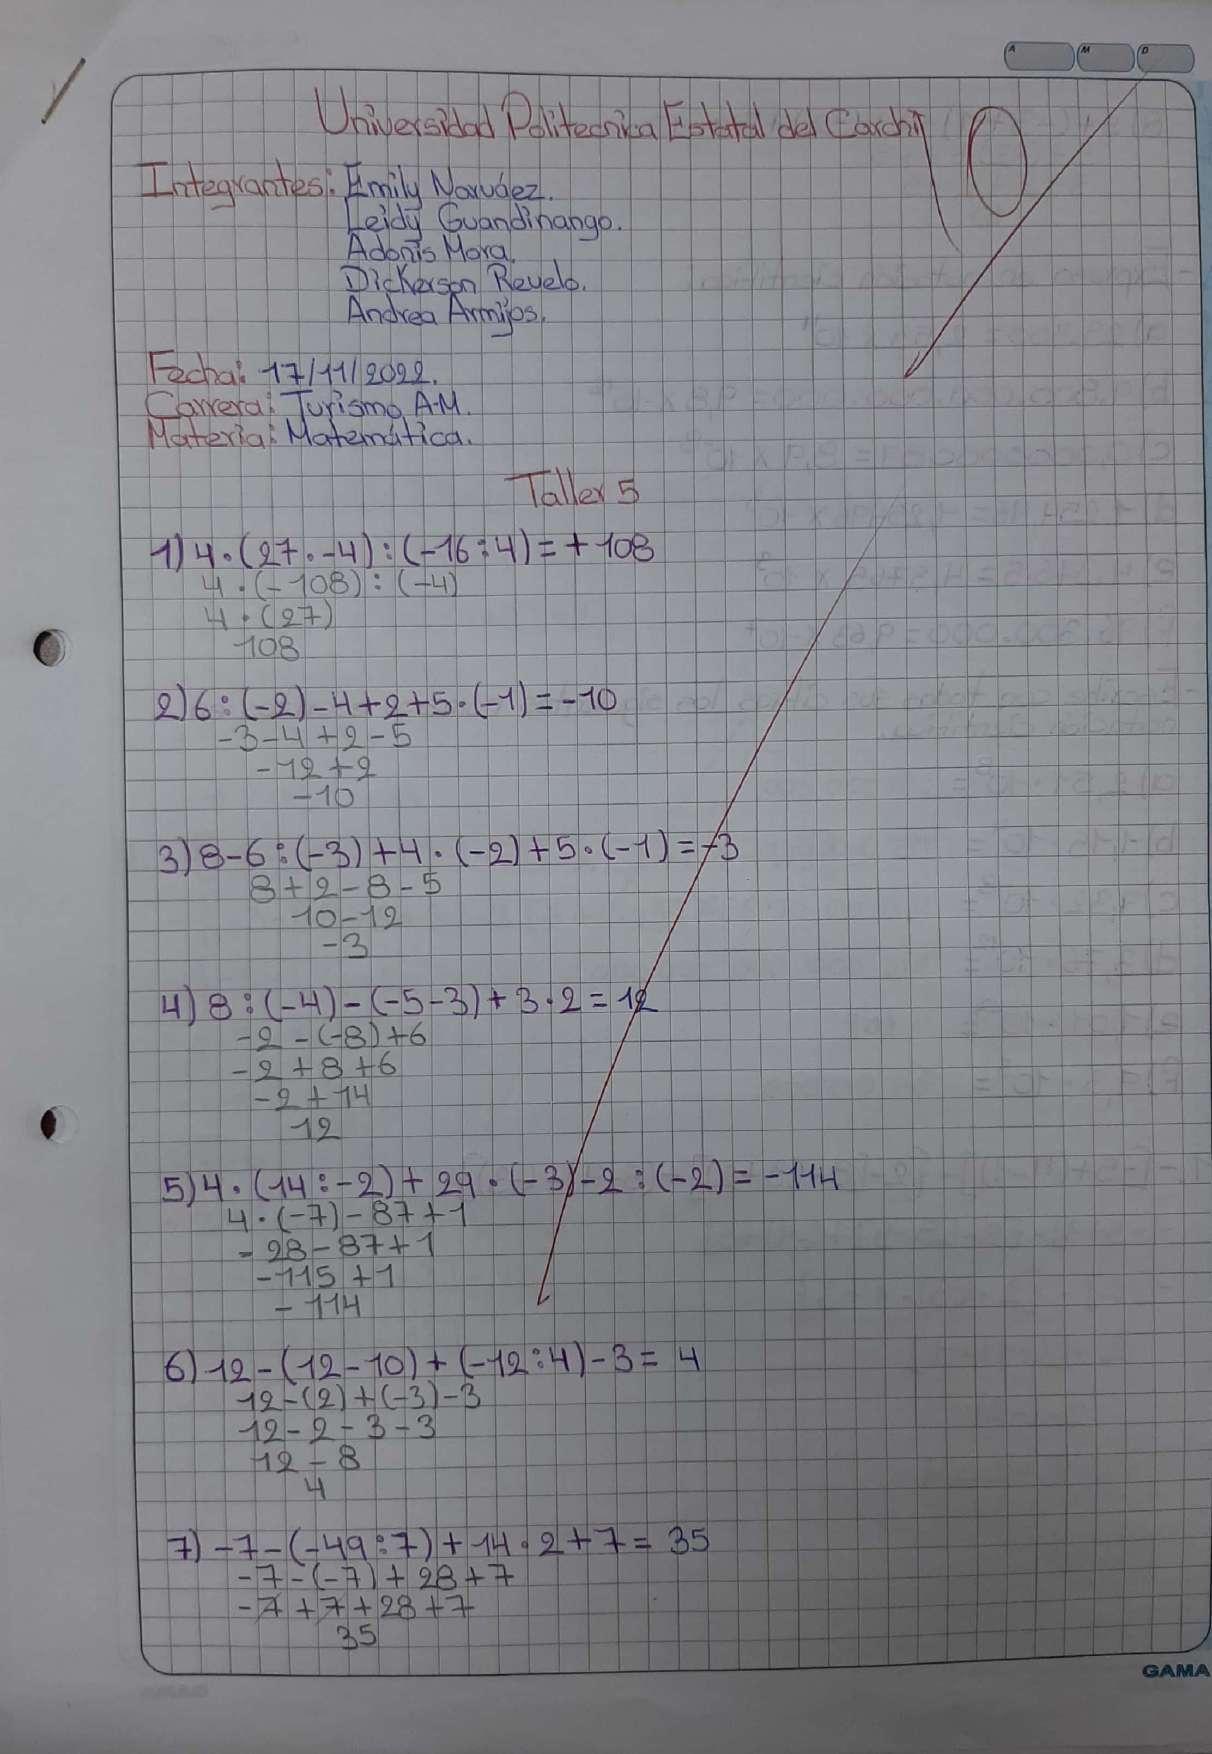 A M D
Universidad Politecnica Estatal del Carchi
Integrantes: Emily Narváez.
Leidy Guandinango.
Adonis Mora.
Dickerson Revelo.
Andrea Armijos.
Fecha: 17/11/2022.
Carrera: Turismo A-M.
Materia: Matemática.
Taller 5
1) 4 · (27 · -4) : (-16 : 4) = + 108
4 · (-108) : (-4)
4 · (27)
108
2) 6 : (-2) - 4 + 2 + 5 · (-1) = -10
-3 - 4 + 2 - 5
-12 + 2
-10
3) 8 - 6 : (-3) + 4 · (-2) + 5 · (-1) = -3
8 + 2 - 8 - 5
10 - 12
-3
4) 8 : (-4) - (-5 - 3) + 3 · 2 = 12
-2 - (-8) + 6
-2 + 8 + 6
-2 + 14
12
5) 4 · (14 : -2) + 29 · (-3) - 2 : (-2) = -114
4 · (-7) - 87 + 1
- 28 - 87 + 1
-115 + 1
- 114
6) 12 - (12 - 10) + (-12 : 4) - 3 = 4
12 - (2) + (-3) - 3
12 - 2 - 3 - 3
12 - 8
4
7) -7 - (-49 : 7) + 14 · 2 + 7 = 35
-7 - (-7) + 28 + 7
-7 + 7 + 28 + 7
35
GAMA